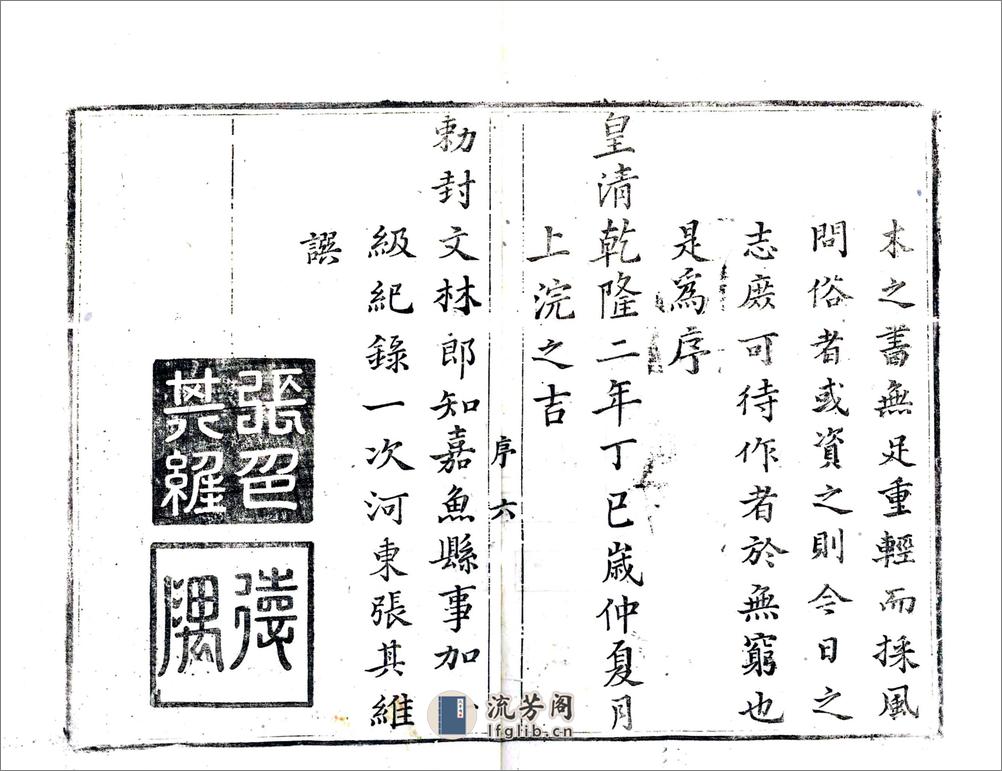 木之書無足重輕而採風
問俗者或資之則今日之
志庶可待作者於無窮也
是為序
皇清乾隆二年丁巳歲仲夏月
上浣之吉
序 六
勅封文林郎知嘉魚縣事加
級紀錄一次河東張其維
譔
張邑其維
德隅
流芳阁
lfglib.cn